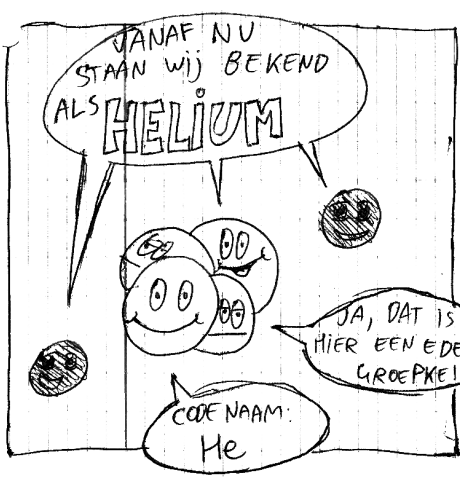 VANAF NU
STAAN WIJ BEKEND
ALS HELIUM
JA, DAT IS
HIER EEN EDE
GROEPKE!
CODE NAAM:
He